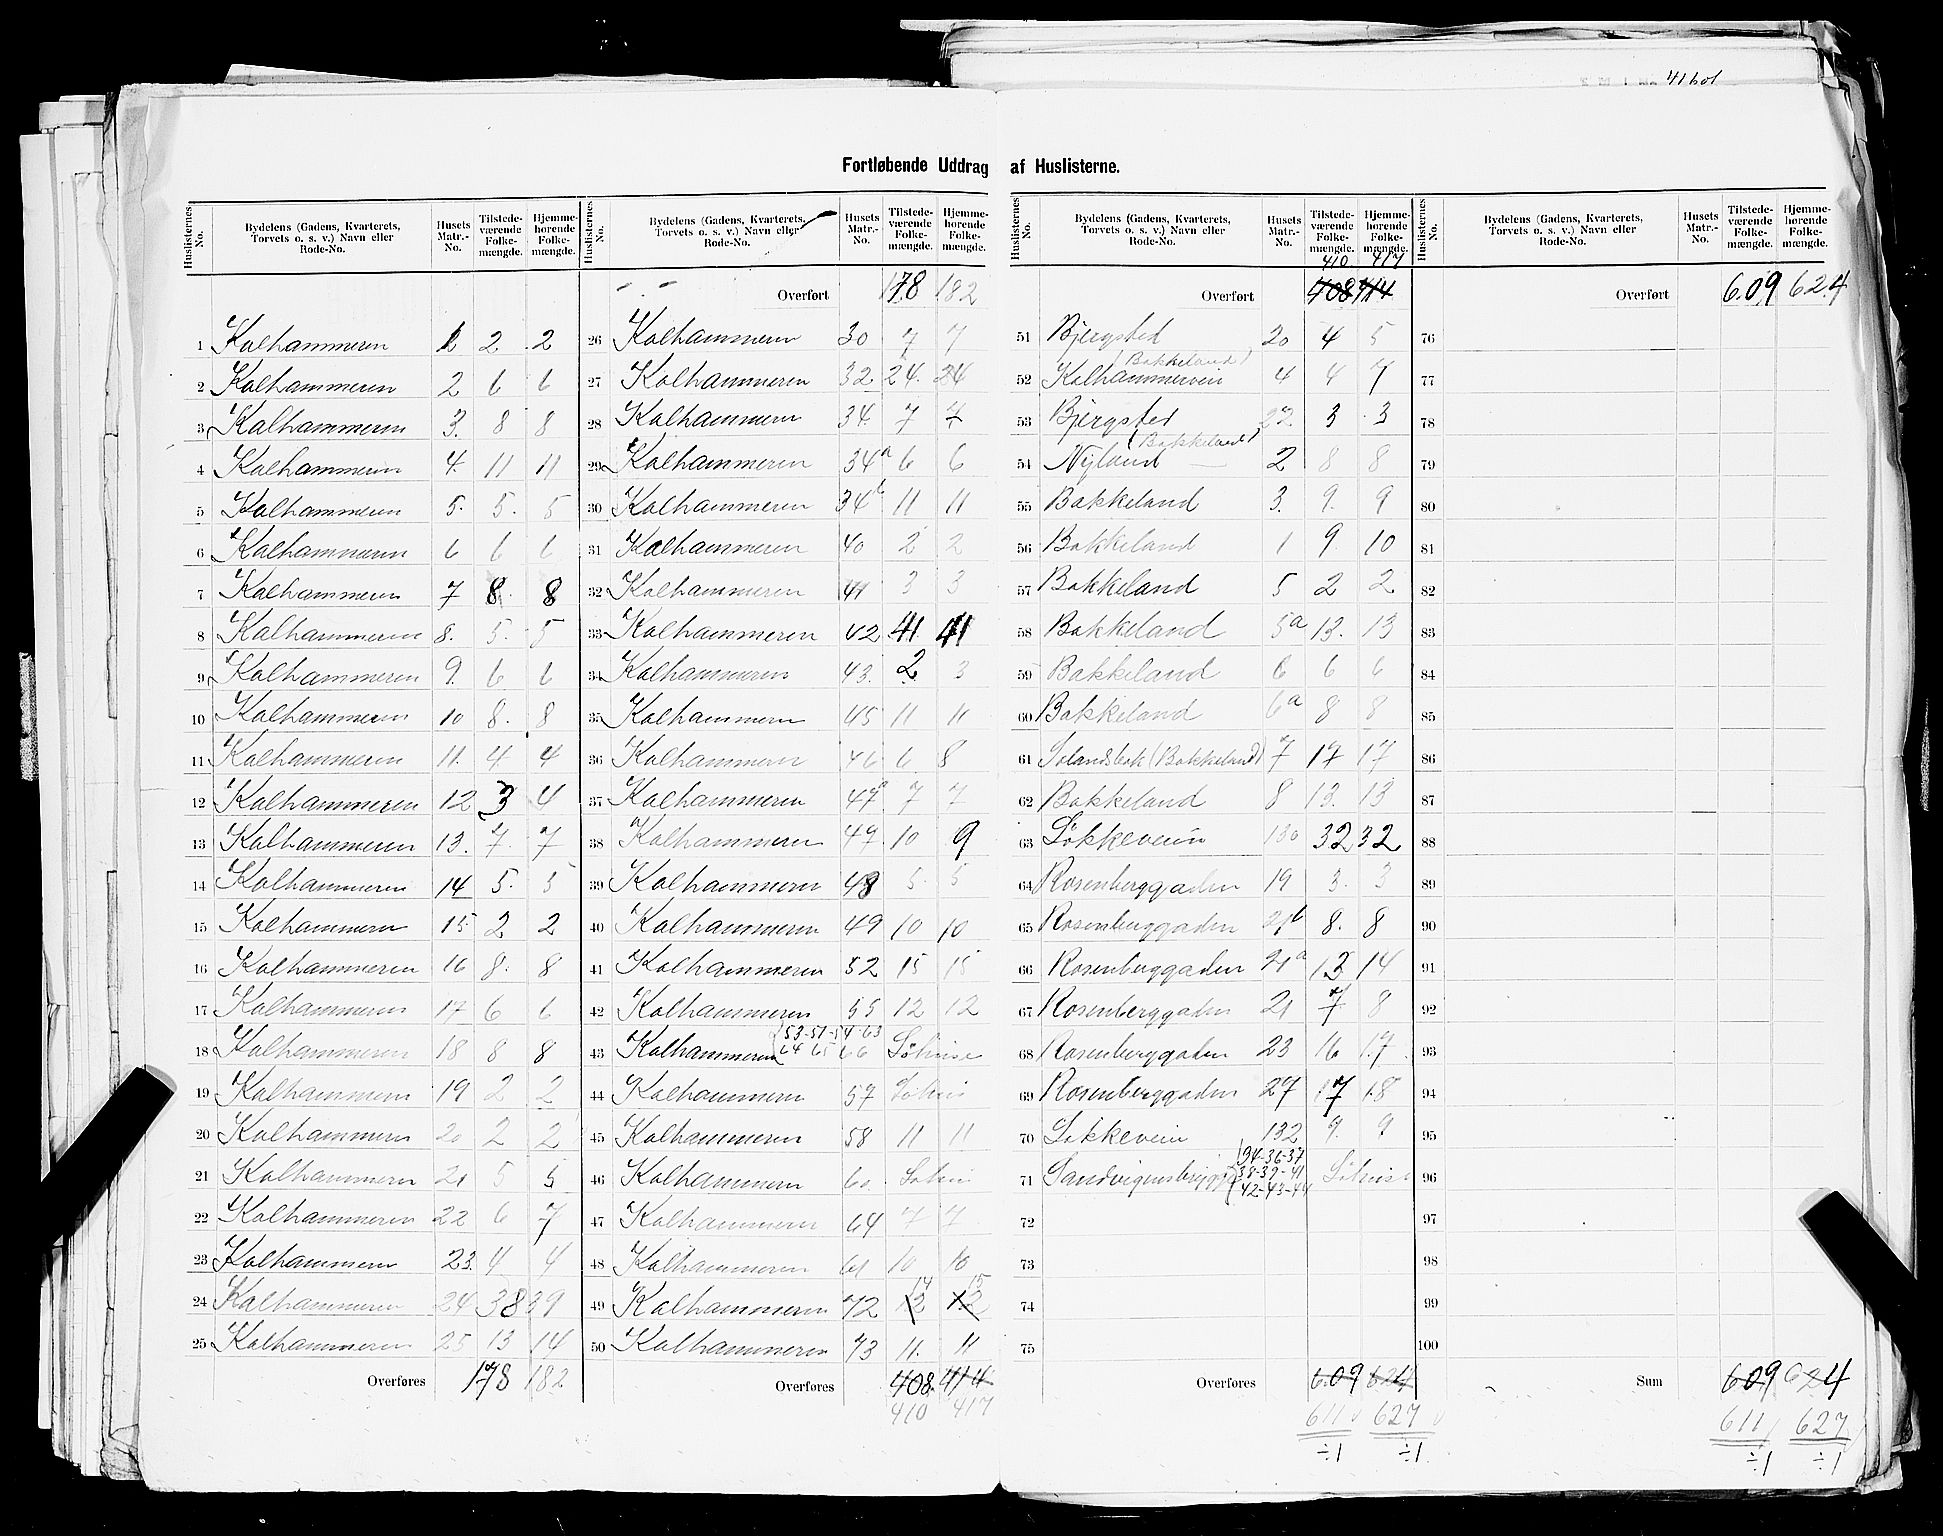 41601
Fortløbende Uddrag af Huslisterne.
Huslisternes No. | Bydelens (Gadens, Kvarterets, Torvets o. s. v.) Navn eller Rode-No. | Husets Matr.-No. | Tilstedeværende Folkemængde. | Hjemmehørende Folkemængde.
1 Kalhammeren 1 2 2
2 Kalhammeren 2 6 6
3 Kalhammeren 3. 8 8
4 Kalhammeren 4. 11 11
5 Kalhammeren 5. 5. 5
6 Kalhammeren 6 6 6
7 Kalhammeren 7 8. 8
8 Kalhammeren 8. 5. 5
9 Kalhammeren 9. 6 6
10 Kalhammeren 10 8. 8
11 Kalhammeren 11. 4 4
12 Kalhammeren 12 3 4
13 Kalhammeren 13. 7. 7
14 Kalhammeren 14 5. 5
15 Kalhammeren 15 2 2
16 Kalhammeren 16 8. 8
17 Kalhammeren 17 6 6
18 Kalhammeren 18 8 8
19 Kalhammeren 19 2 2
20 Kalhammeren 20 2 2
21 Kalhammeren 21 5 5
22 Kalhammeren 22 6 7
23 Kalhammeren 23. 4 4
24 Kalhammeren 24 38 39
25 Kalhammeren 25 13 14
Overføres 178 182
Huslisternes No. | Bydelens (Gadens, Kvarterets, Torvets o. s. v.) Navn eller Rode-No. | Husets Matr.-No. | Tilstedeværende Folkemængde. | Hjemmehørende Folkemængde.
Overført 178 182
26 Kalhammeren 30 7 7
27 Kalhammeren 32 24. 24
28 Kalhammeren 34. 7 7
29 Kalhammeren 34a 6 6
30 Kalhammeren 34b 11 11
31 Kalhammeren 40 2 2
32 Kalhammeren 41 3 3
33 Kalhammeren 42 41. 41
34 Kalhammeren 43. 2 3
35 Kalhammern 45 11 11
36 Kalhammern 46 6 8
37 Kalhammeren 47a 7 7
38 Kalhammeren 47. 10 9
39 Kalhammeren 48 5. 5
40 Kalhammeren 49 10 10
41 Kalhammeren 52 15 15
42 Kalhammeren 55 12 12
43 Kalhammeren (53-51-54-63 64 65 66 Søhuse
44 Kalhammeren 57 Søhus
45 Kalhammeren 58 11 11
46 Kalhammeren 60.
47 Kalhammeren 64 7 7
48 Kalhammeren 61 10 10
49 Kalhammeren 72 12 14 12 15
50 Kalhammeren 73 11. 11
Overføres 408. 414.
410 417
Huslisternes No. | Bydelens (Gadens, Kvarterets, Torvets o. s. v.) Navn eller Rode-No. | Husets Matr.-No. | Tilstedeværende Folkemængde. | Hjemmehørende Folkemængde.
410 417
Overført 408 414
51 Bjergsted 20 4 5
52 Kalhammerveien (Bakkeland) 4 4 7
53 Bjergsted 22 3 3
54 Nyland (Bakkeland) 2 8 8
55 Bakkeland 3. 9. 9
56 Bakkeland 1 9. 10
57 Bakkeland 5 2 2
58 Bakkeland 5a 13. 13
59 Bakkeland 6 6 6
60 Bakkeland 6a 8 8
61 Solandsbak (Bakkeland) 7 17 17
62 Bakkeland 8 13. 13
63 Løkkeveien 130 32 32
64 Rosenberggaden 19 3. 3
65 Rosenberggaden 21b 8. 8
66 Rosenberggaden 21a 13 14
67 Rosenberggaden 21 7. 8
68 Rosenberggaden 23 16 17
69 Rosenberggaden 27 17 18
70 Løkkeveien 132 9. 9
71 Sandvigensbrygge (34-36-37 38-39-41 42-43-44 Søhuse
72
73
74
75
Overføres 609 624
611 627
÷1 ÷1.
Huslisternes No. | Bydelens (Gadens, Kvarterets, Torvets o. s. v.) Navn eller Rode-No. | Husets Matr.-No. | Tilstedeværende Folkemængde. | Hjemmehørende Folkemængde.
Overført 609 624
76
77
78
79
80
81
82
83
84
85
86
87
88
89
90
91
92
93
94
95
96
97
98
99
100
Sum 609 624
611 627
÷1 ÷1